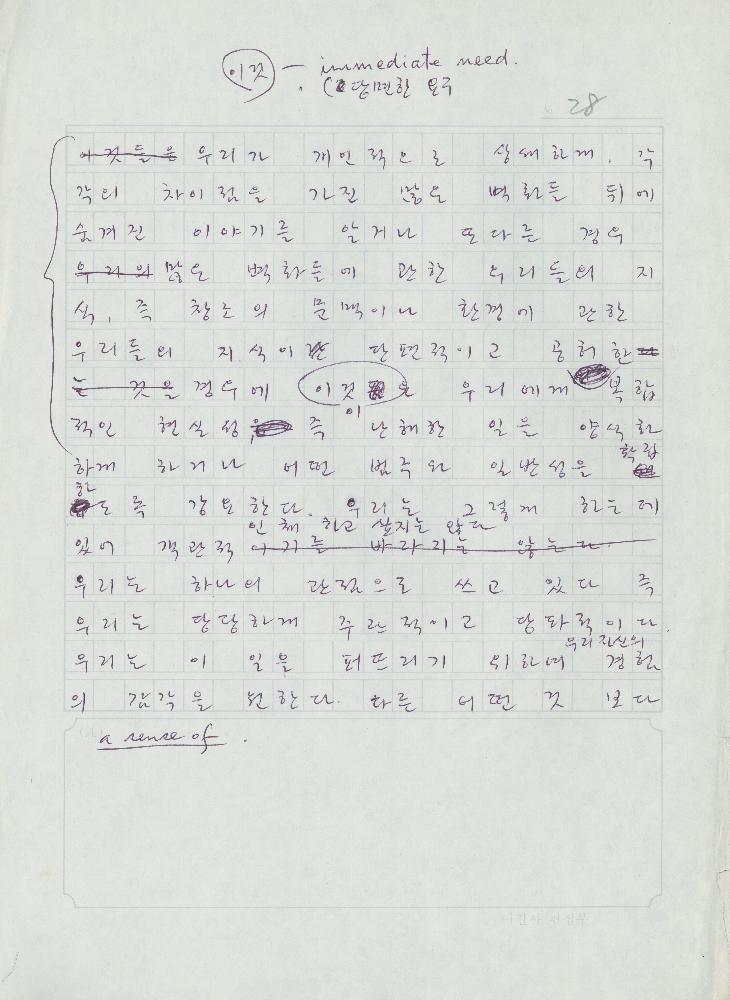 이것 — immediate need.
(당면한 요구
28
이것들은 우리가 개인적으로 상세하게, 각
각의 차이점을 가진 많은 벽화들 뒤에
숨겨진 이야기를 알거나 또다른 경우
우리의 많은 벽화들에 관한 우리들의 지
식, 즉 창조의 문맥이나 환경에 관한
우리들의 지식이 단편적이고 공허한
는 것을 경우에 이것은 우리에게 복합
적인 현실성 즉 이 난해한 일을 양식화
하게 하거나 어떤 범주와 일반성을 확립
하도록 강요한다. 우리는 그렇게 하는데
인 체 하고 싶지는 않다
있어 객관적 이기를 바라지는 않는다.
우리는 하나의 단점으로 쓰고 있다 즉
우리는 당당하게 주관적이고 당파적이다.
우리 자신의
우리는 이 일을 퍼뜨리기 위하여 경험
의 감각을 원한다. 다른 어떤 것 보다
a sense of.